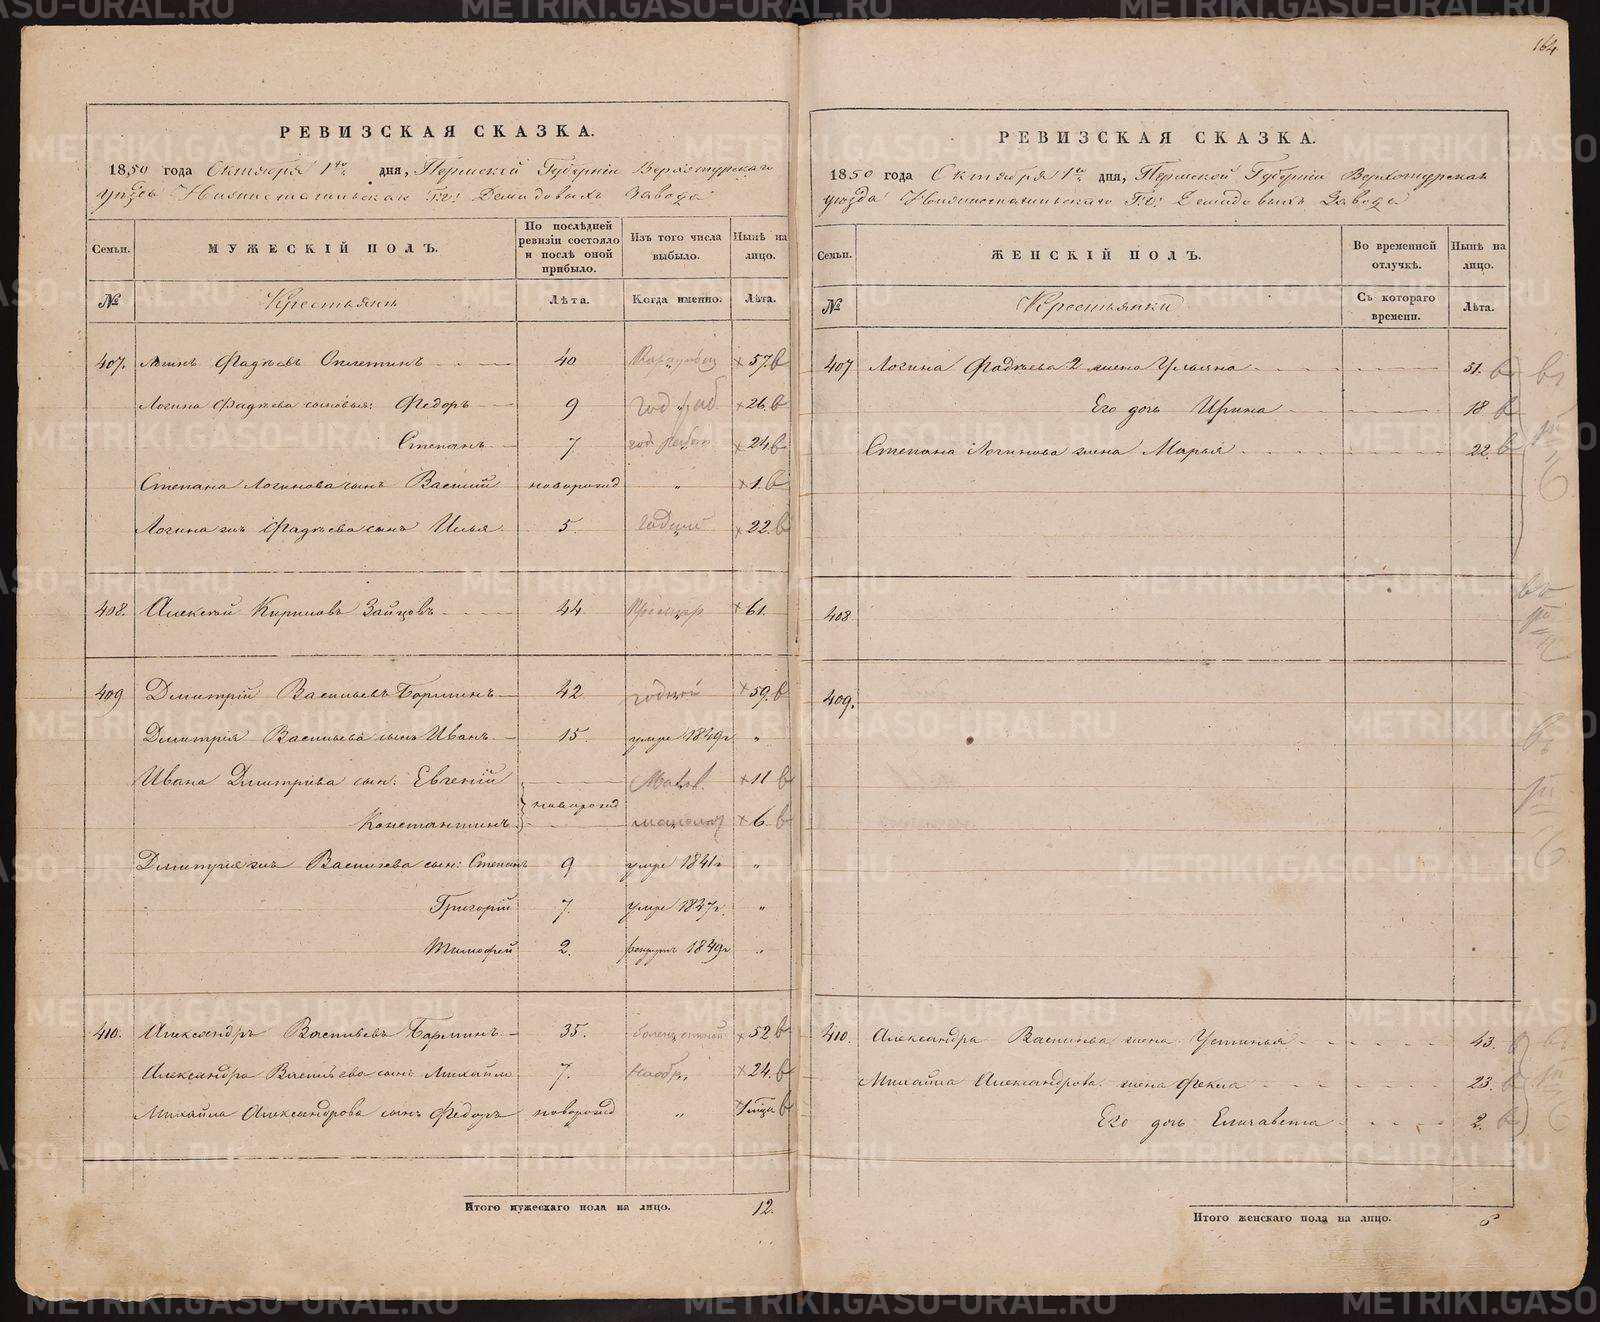 164
РЕВИЗСКАЯ СКАЗКА.
1850 года Октября 1го дня, Пермской Губерніи Верхотурскаго
уѣзда Нижнетагильскаго Гг: Демидовыхъ Завода
Семьи.
МУЖЕСКІЙ ПОЛЪ.
По послѣдней ревизіи состояло и послѣ оной прибыло.
Изъ того числа выбыло.
Нынѣ на лицо.
№
Крестьянъ
Лѣта.
Когда именно.
Лѣта.
407. Логинъ Фадѣевъ 40 57. в
Логина Фадѣева сыновья: Федоръ 9 год 26. в
Степанъ 7 24 в
Степана Логинова сынъ Василій новорожд „ 1. в
Логина жъ Фадѣева сынъ Илья 5. годный 22. в
408. Алексѣй Кириловъ Зайцовъ 44 61.
409 Дмитрій Васильевъ 42 годной 59. в
Дмитрія Васильева сынъ Иванъ 15. умре 1849г „
Ивана Дмитріева сын: Евгеній 11 в
новорожд
Константинъ 6. в
Дмитрія жъ Васильева сын: Степанъ 9 умре 1841г „
Григорій 7. умре 1847г. „
Тимофей 2. рекрутъ 1849г „
410. Александръ Васильевъ 35. 52 в
Александра Васильева сынъ Михайло 7. 24. в
Михайла Александрова сынъ Федоръ новорожд „ в
Итого мужескаго пола на лицо. 12.
РЕВИЗСКАЯ СКАЗКА.
1850 года Октября 1го дня, Пермской Губерніи Верхотурскаго
уѣзда Нижнетагильскаго Гг: Демидовыхъ Завода
Семьи.
ЖЕНСКІЙ ПОЛЪ.
Во временной отлучкѣ.
Нынѣ на лицо.
№
Крестьянки
Съ котораго времени.
Лѣта.
407 Логина Фадѣева 2 жена Ульяна 51. в
Его дочь Ирина 18 в
Степана Логинова жена Марья 22. в
408
409.
410. Александра Васильева жена Устинья 43. в
Михайла Александрова жена Фекла 23. в
Его дочь Елизавета 2. в
Итого женскаго пола на лицо. 6
METRIKI.GASO-URAL.RU